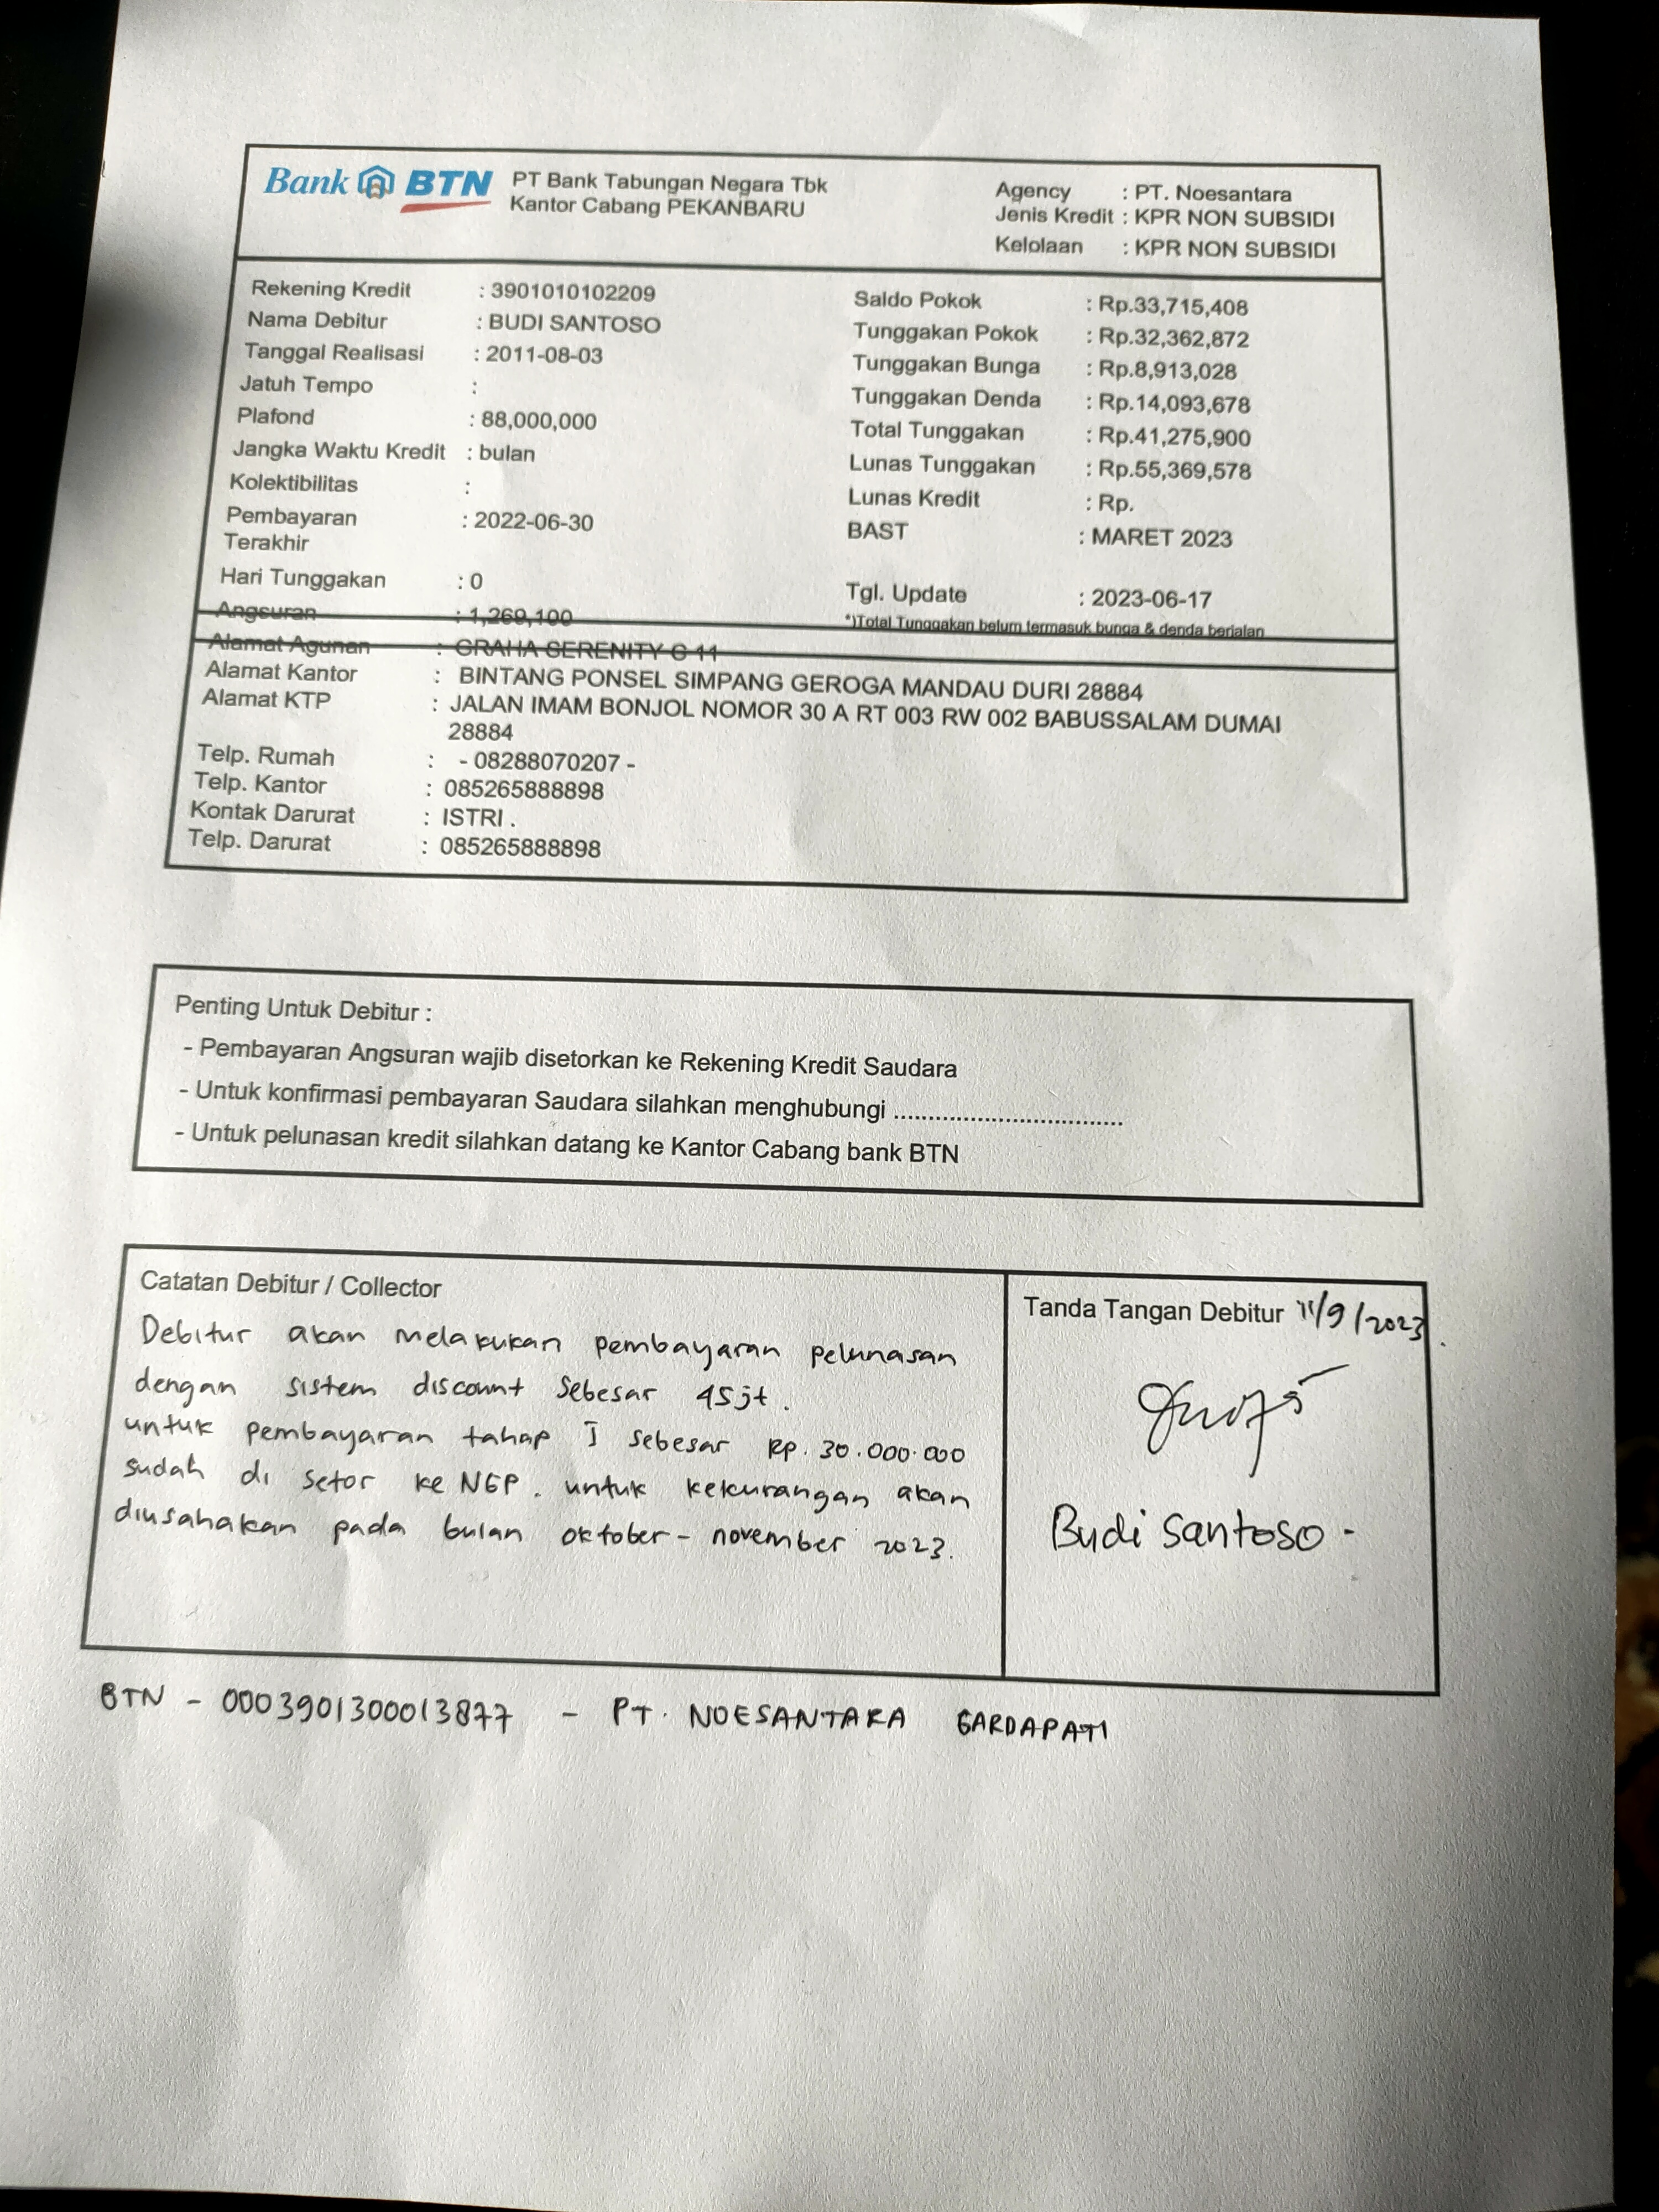 Bank BTN PT Bank Tabungan Negara Tbk
Kantor Cabang PEKANBARU
Agency : PT. Noesantara
Jenis Kredit : KPR NON SUBSIDI
Kelolaan : KPR NON SUBSIDI
Rekening Kredit : 3901010102209
Nama Debitur : BUDI SANTOSO
Tanggal Realisasi : 2011-08-03
Jatuh Tempo :
Plafond : 88,000,000
Jangka Waktu Kredit : bulan
Kolektibilitas :
Pembayaran : 2022-06-30
Terakhir
Hari Tunggakan : 0
Angsuran : 1,269,100
Saldo Pokok : Rp.33,715,408
Tunggakan Pokok : Rp.32,362,872
Tunggakan Bunga : Rp.8,913,028
Tunggakan Denda : Rp.14,093,678
Total Tunggakan : Rp.41,275,900
Lunas Tunggakan : Rp.55,369,578
Lunas Kredit : Rp.
BAST : MARET 2023
Tgl. Update : 2023-06-17
*)Total Tunggakan belum termasuk bunga & denda berjalan
Alamat Agunan : GRAHA SERENITY C 11
Alamat Kantor : BINTANG PONSEL SIMPANG GEROGA MANDAU DURI 28884
Alamat KTP : JALAN IMAM BONJOL NOMOR 30 A RT 003 RW 002 BABUSSALAM DUMAI
28884
Telp. Rumah : - 08288070207 -
Telp. Kantor : 085265888898
Kontak Darurat : ISTRI .
Telp. Darurat : 085265888898
Penting Untuk Debitur :
- Pembayaran Angsuran wajib disetorkan ke Rekening Kredit Saudara
- Untuk konfirmasi pembayaran Saudara silahkan menghubungi ..................................
- Untuk pelunasan kredit silahkan datang ke Kantor Cabang bank BTN
Catatan Debitur / Collector
Debitur akan melakukan pembayaran pelunasan
dengan sistem discount sebesar 45jt.
untuk pembayaran tahap I sebesar Rp. 30.000.000
sudah di setor ke NGP. untuk kekurangan akan
diusahakan pada bulan oktober - november 2023.
Tanda Tangan Debitur 11/9/2023.
Budi Santoso -
BTN - 0003901300013877 - PT. NOESANTARA GARDAPATI